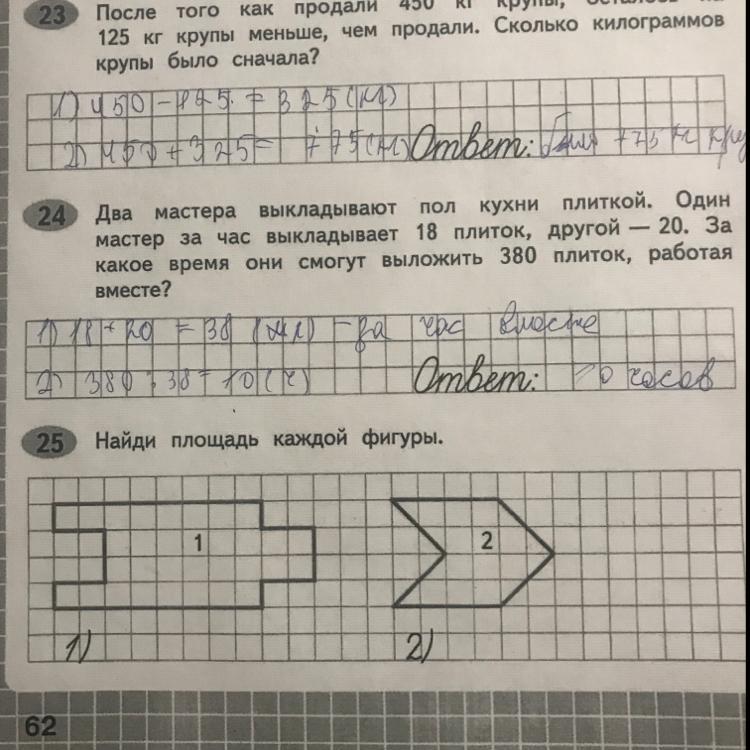 23 После того как продали 450 кг крупы, осталось на
125 кг крупы меньше, чем продали. Сколько килограммов
крупы было сначала?
1) 450 - 125 = 325 (кг)
2) 450 + 325 = 775 (кг) Ответ: было 775 кг
24 Два мастера выкладывают пол кухни плиткой. Один
мастер за час выкладывает 18 плиток, другой — 20. За
какое время они смогут выложить 380 плиток, работая
вместе?
1) 18 + 20 = 38 - за час вместе
2) 380 : 38 = 10 (ч) Ответ: 10 часов
25 Найди площадь каждой фигуры.
1 2
1) 2)
62